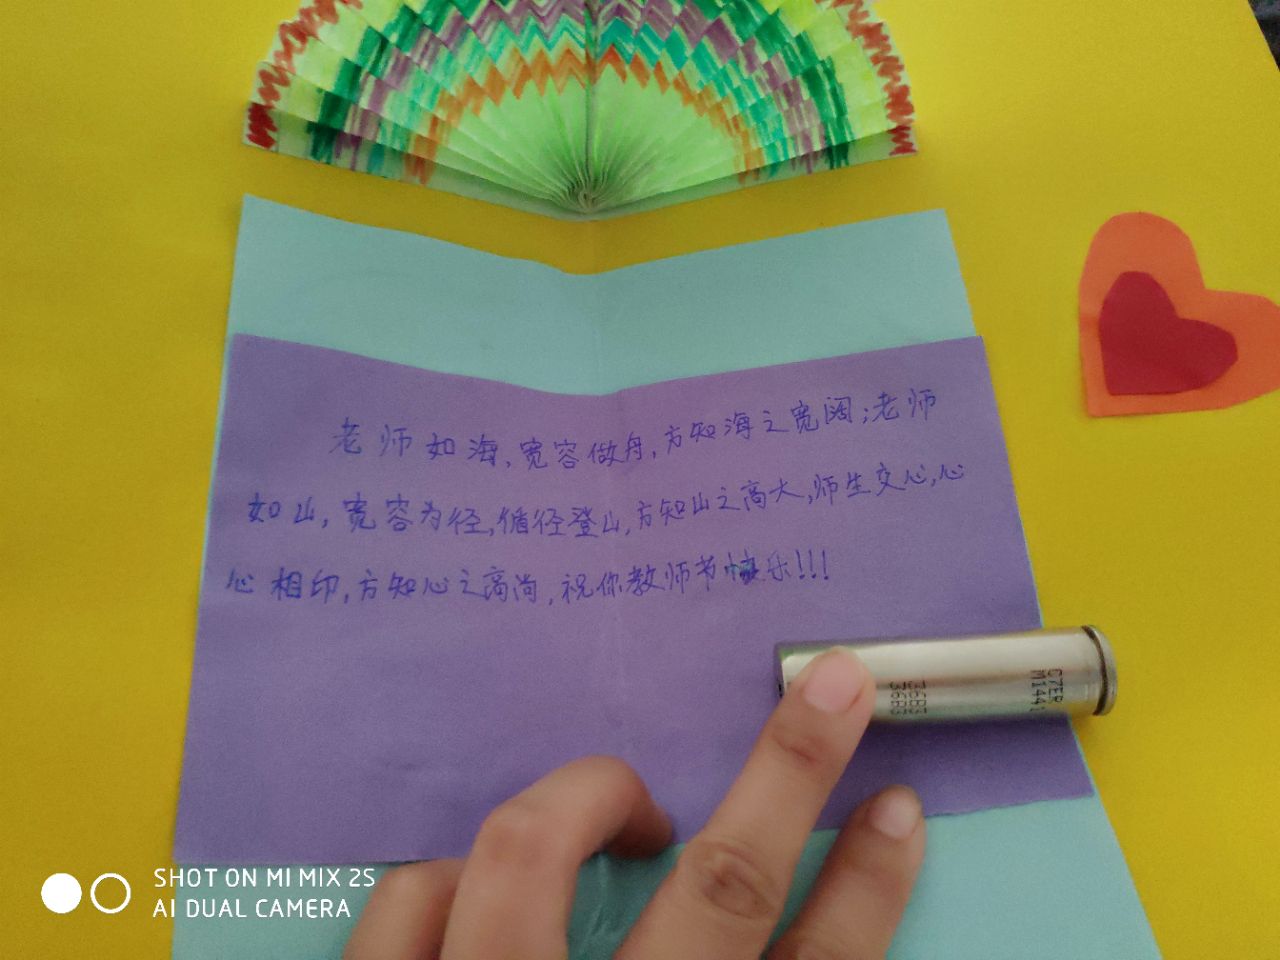 老师如海,宽容做舟,方知海之宽阔;老师
如山,宽容为径,循径登山,方知山之高大,师生交心,心
心相印,方知心之高尚,祝你教师节快乐!!!
36B3
36B3
C7ER
M1441
SHOT ON MI MIX 2S
AI DUAL CAMERA